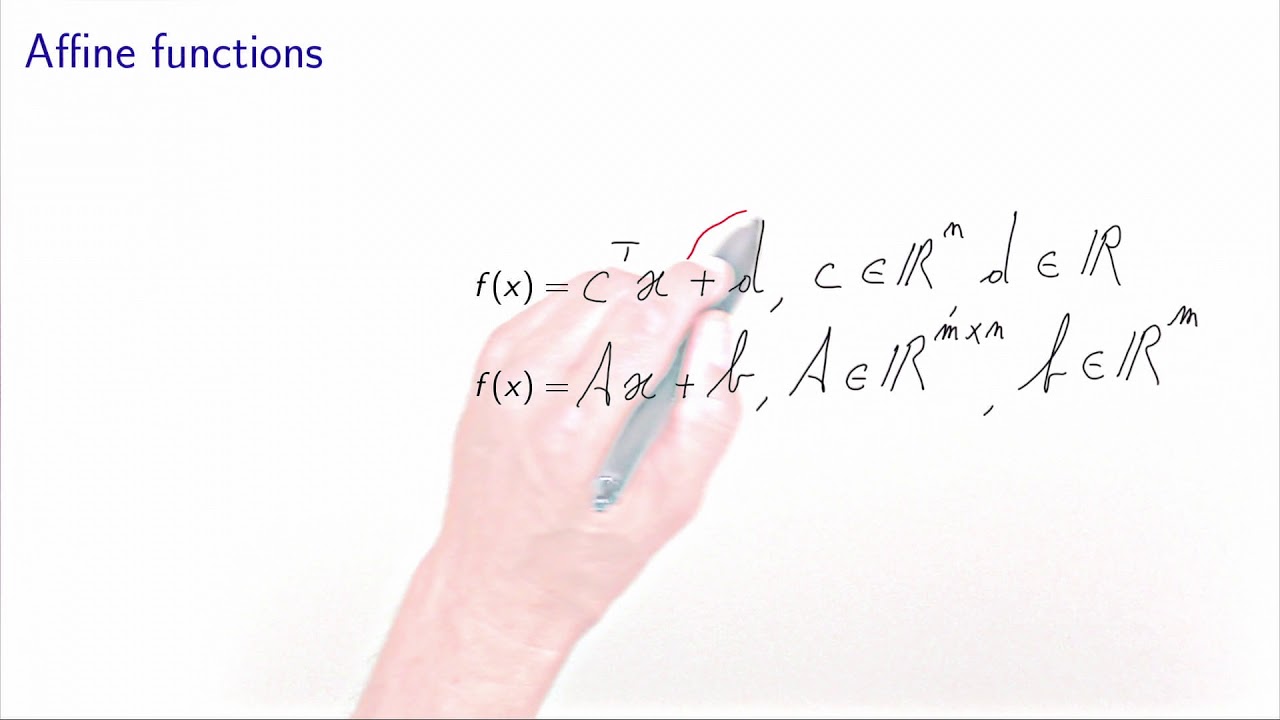 Affine functions
f(x) = cᵀx + d, c ∈ ℝⁿ d ∈ ℝ
f(x) = Ax + b, A ∈ ℝᵐˣⁿ, b ∈ ℝᵐ